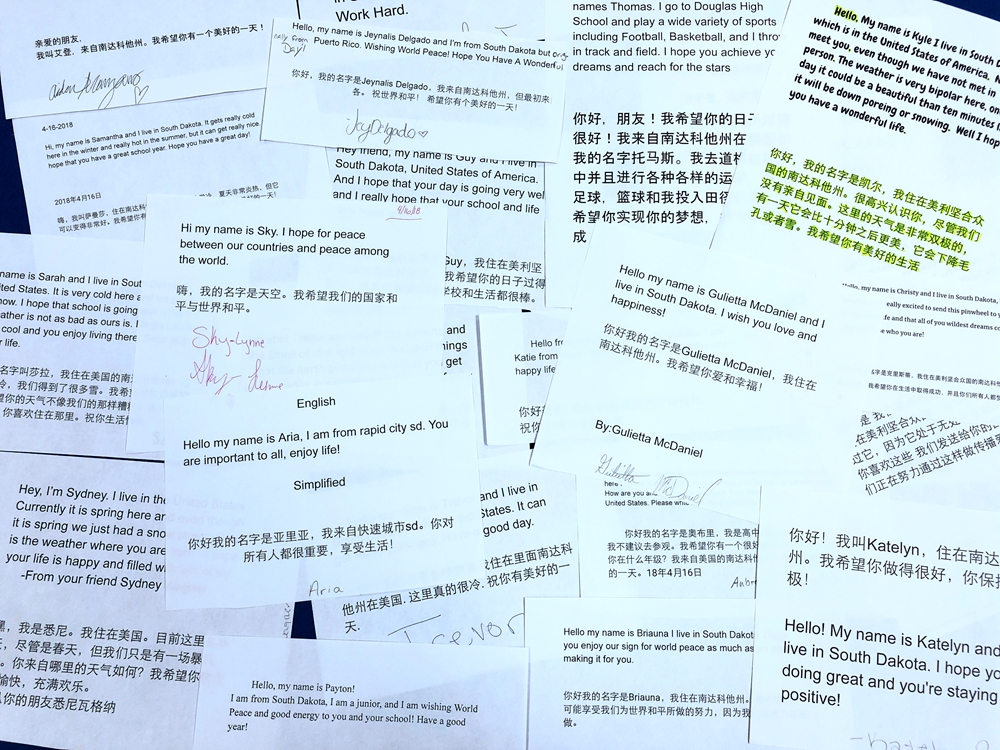 Work Hard.
亲爱的朋友,
我叫艾登，来自南达科他州。我希望你有一个美好的一天！
Hello, my name is Jeynalis Delgado and I'm from South Dakota but
Puerto Rico. Wishing World Peace! Hope You Have A Wonderful
Day!
你好，我的名字是Jeynalis Delgado，我来自南达科他州，但最初来
各。 祝世界和平！ 希望你有个美好的一天！
Jey Delgado
names Thomas. I go to Douglas High
School and play a wide variety of sports
including Football, Basketball, and I throw
in track and field. I hope you achieve yo
dreams and reach for the stars
你好，朋友！我希望你的日子
很好！我来自南达科他州在
我的名字托马斯。我去道格
中并且进行各种各样的运
足球，篮球和我投入田径
希望你实现你的梦想，
成
Hello, My name is Kyle I live in South D
which is in the United States of America.
meet you, even though we have not met in
person. The weather is very bipolar here, on
day it could be a beautiful than ten minutes l
it will be down poreing or snowing. Well I hop
you have a wonderful life.
你好，我的名字是凯尔，我住在美利坚合众
国的南达科他州。很高兴认识你，尽管我们
没有亲自见面。这里的天气是非常双极的，
有一天它会比十分钟之后更美，它会下降毛
孔或者雪。我希望你有美好的生活
4-16-2018
Hi, my name is Samantha and I live in South Dakota. It gets really cold
here in the winter and really hot in the summer, but it can get really nice
hope that you have a great school year. Hope you have a great day!
2018年4月16日
嗨，我叫萨曼莎，住在南达科
可以变得非常好。我希望你有
夏天非常炎热，但它
Hey friend, my name is Guy and I live in
South Dakota, United States of America.
And I hope that your day is going very wel
and I really hope that your school and life
Guy，我住在美利坚
我希望你的日子过得
学校和生活都很棒。
4/16/18
Hi my name is Sky. I hope for peace
between our countries and peace among
the world.
嗨，我的名字是天空。我希望我们的国家和
平与世界和平。
Sky-Lynne
name is Sarah and I live in Sout
ited States. It is very cold here a
now. I hope that school is going
ather is not as bad as ours is. I
cool and you enjoy living there
r life.
名字叫莎拉，我住在美国的南
冷，我们得到了很多雪。我希
望你的天气不像我们的那样糟
你喜欢住在那里。祝你生活
and
nings
get
Hello fr
Katie from
happy life
你好
祝你
Hello my name is Gulietta McDaniel and I
live in South Dakota. I wish you love and
happiness!
你好我的名字是Gulietta McDaniel，我住在
南达科他州。我希望你爱和幸福！
By:Gulietta McDaniel
my name is Christy and I live in South Dakota,
eally excited to send this pinwheel to y
fe and that all of you wildest dreams co
e who you are!
名字是克里斯蒂，我住在美利坚合众国的南达科他
我希望你在生活中取得成功，并且你们所有人都
在美利坚合众
过它，因为它处于无
你喜欢这些 我们发送给你的
们正在努力通过这样做传播
English
Hello my name is Aria, I am from rapid city sd. You
are important to all, enjoy life!
Simplified
你好我的名字是亚里亚，我来自快速城市sd。你对
所有人都很重要，享受生活！
Aria
Hey, I'm Sydney. I live in the
Currently it is spring here an
it is spring we just had a sno
is the weather where you are
your life is happy and filled wi
-From your friend Sydney
我是悉尼。我住在美国。目前这里
尽管是春天，但我们只是有一场暴
你来自哪里的天气如何？我希望你
愉快，充满欢乐。
你的朋友悉尼瓦格纳
and I live in
States. It can
good day.
住在里面南达科
他州在美国. 这里真的很冷. 祝你有美好的一
天.
Trevor
here .
How are you
United States. Please
你好我的名字是奥布里，我是高中
我不建议去参观。我希望你有一个很好
你在什么年级？我来自美国的南达科他州
的一天。18年4月16日
Hello, my name is Payton!
I am from South Dakota, I am a junior, and I am wishing World
Peace and good energy to you and your school! Have a good
year!
Hello my name is Briauna I live in South Dakot
you enjoy our sign for world peace as much as
making it for you.
你好我的名字是Briauna，我住在南达科他州。
可能享受我们为世界和平所做的努力，因为我
做。
你好！我叫Katelyn，住在南达
州。我希望你做得很好，你保持
极！
Hello! My name is Katelyn and
live in South Dakota. I hope yo
doing great and you're staying
positive!